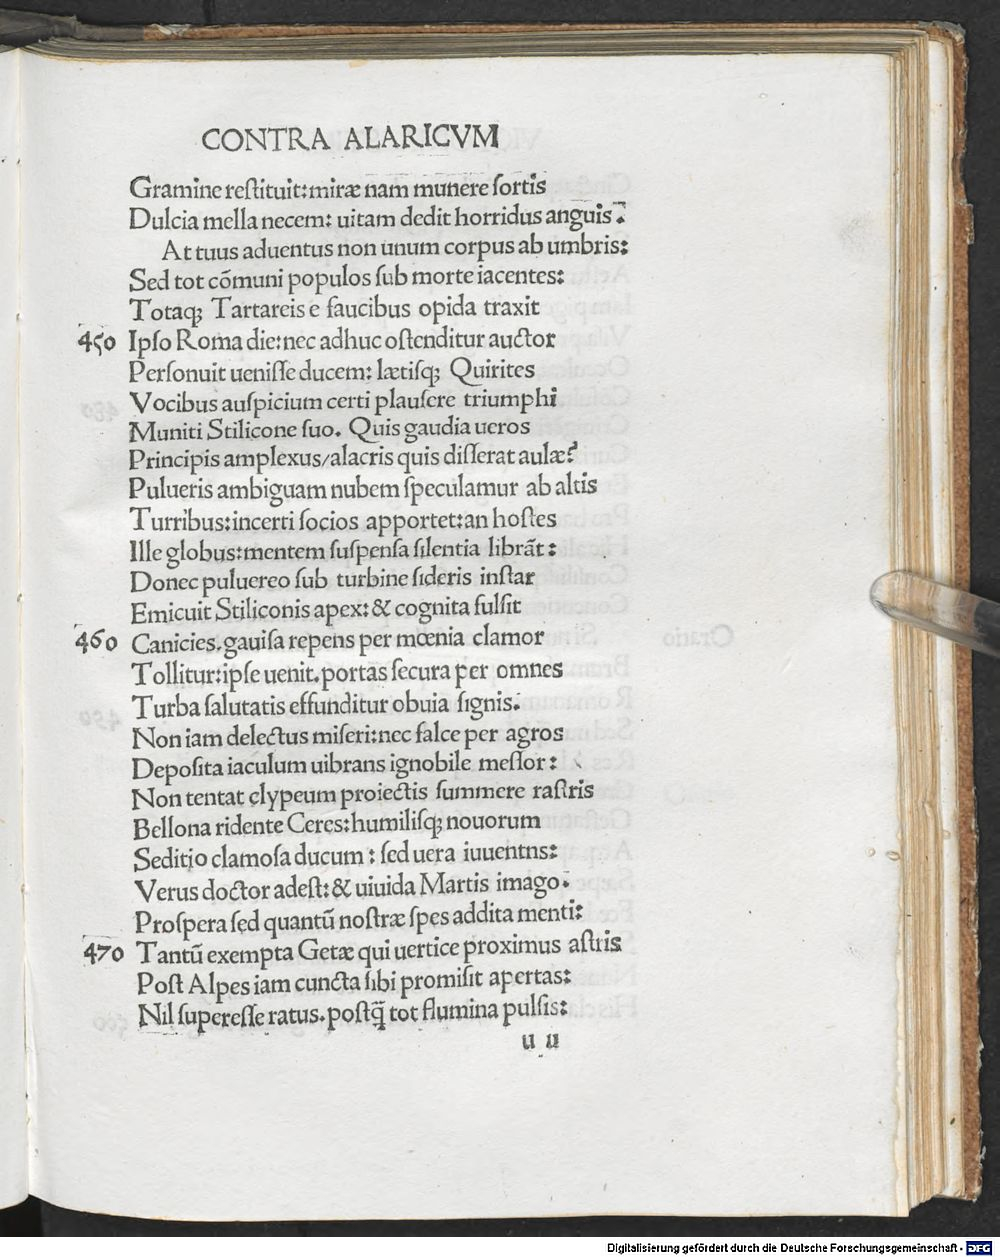 CONTRA ALARICVM
Gramine reſtituit:miræ nam munere ſortis
Dulcia mella necem: uitam dedit horridus anguis.
At tuus aduentus non unum corpus ab umbris:
Sed tot cõmuni populos ſub morte iacentes:
Totaq; Tartareis e faucibus opida traxit
450 Ipſo Roma die:nec adhuc oſtenditur auctor
Perſonuit ueniſſe ducem: lætiſq; Quirites
Vocibus auſpicium certi plauſere triumphi
Muniti Stilicone ſuo. Quis gaudia ueros
Principis amplexus/alacris quis diſſerat aulæ?
Pulueris ambiguam nubem ſpeculamur ab altis
Turribus:incerti ſocios apportet:an hoſtes
Ille globus:mentem ſuſpenſa ſilentia librãt:
Donec puluereo ſub turbine ſideris inſtar
Emicuit Stiliconis apex:& cognita fulſit
460 Canicies.gauiſa repens per mœnia clamor
Tollitur:ipſe uenit.portas ſecura per omnes
Turba ſalutatis effunditur obuia ſignis.
Non iam delectus miſeri:nec falce per agros
Depoſita iaculum uibrans ignobile meſſor:
Non tentat clypeum proiectis ſummere raſtris
Bellona ridente Ceres:humiliſq; nouorum
Seditio clamoſa ducum: ſed uera iuuentns:
Verus doctor adeſt:& uiuida Martis imago.
Proſpera ſed quantũ noſtræ ſpes addita menti:
470 Tantũ exempta Getæ qui uertice proximus aſtris
Poſt Alpes iam cuncta ſibi promiſit apertas:
Nil ſupereſſe ratus.poſtq̃ tot flumina pulſis:
u u
Digitalisierung gefördert durch die Deutsche Forschungsgemeinschaft - DFG